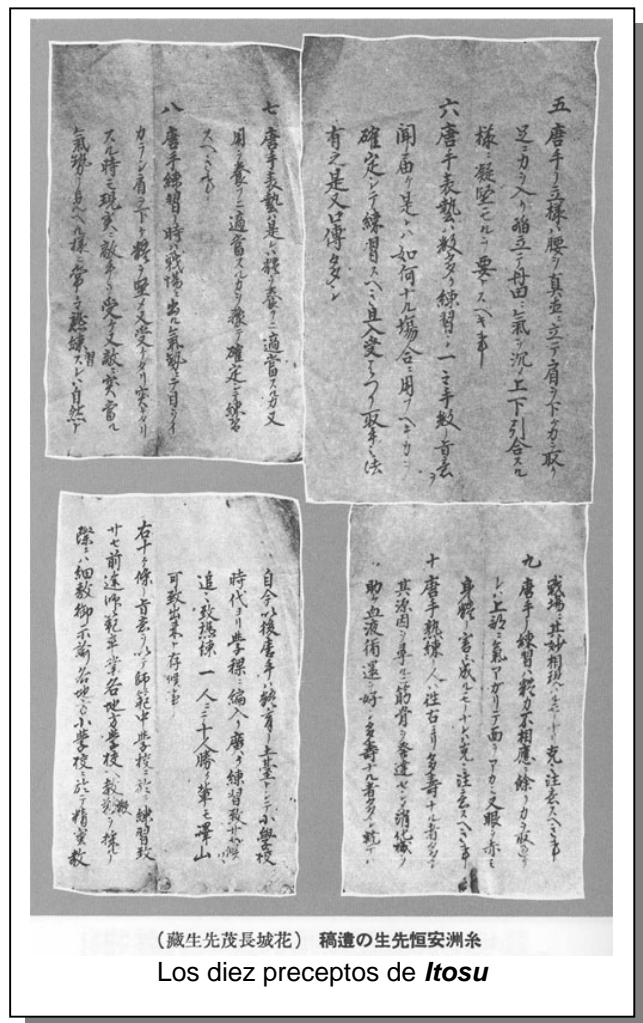 五 唐手ノ立様ハ腰ヲ真直ニ立テ肩ヲ下ケ力ヲ取リ
足ニ力ヲ入レ踏立テ丹田ニ氣ヲ沉メ上下引合スル
様ニ凝堅メルヲ要トスヘキ事
六 唐手表藝ハ数多ク練習シ一々手数ノ旨意ヲ
聞届ケ是レハ如何ナル塲合ニ用フヘキカヲ
確定シテ練習スヘシ且入受ハツシ取手ノ法
有之是又口傳多シ
七 唐手表藝ハ是レハ體ヲ養フニ適當スルカ又
用ヲ養フニ適當スルカヲ豫テ確定シテ練習
スヘキ事
八 唐手練習ノ時ハ戦場ニ出ル氣勢ニテ目ヲイ
カラシ肩ヲ下ケ體ヲ堅メ又受ケタリ突キタリ
スル時モ現実ニ敵手ヲ受ケ又敵ニ突當ル
氣勢ノ見ヘル様ニ常々熟練スレハ自然ト
戦塲ニ其妙相現ハルモノナリ克々注意スヘキ事
九 唐手ノ練習ハ體力不相應ニ餘リ力ヲ取過シ
レハ上部ニ氣アガリテ面ヲアカミ又眼ヲ赤ミ
身體ノ害ニ成ルモノナレハ克々注意スヘキ事
十 唐手熟練ノ人ハ往古ヨリ多壽ナル者多シ
其源因ヲ尋ルニ筋骨ヲ発達セシメ消化機ヲ
助ケ血液循還ヲ好クシ多壽ナル者多シ就テハ
自今以後唐手ハ體育ノ土基トシテ小學校
時代ヨリ學課ニ編入リ廣ク練習致サセ候ハヽ
追々致熟練一人ニテ十人勝ノ輩モ澤山
可致出来ト存候也
右十ケ條ノ旨意ヲ以テ師範中學校ニ於テ練習致
サセ前途師範卒業各地方學校ヘ教鞭ヲ採ルノ
際ニハ細敷御示諭各地方小學校ニ於テ精密教
(藏生先茂長城花) 稿遺の生先恒安洲糸
Los diez preceptos de Itosu